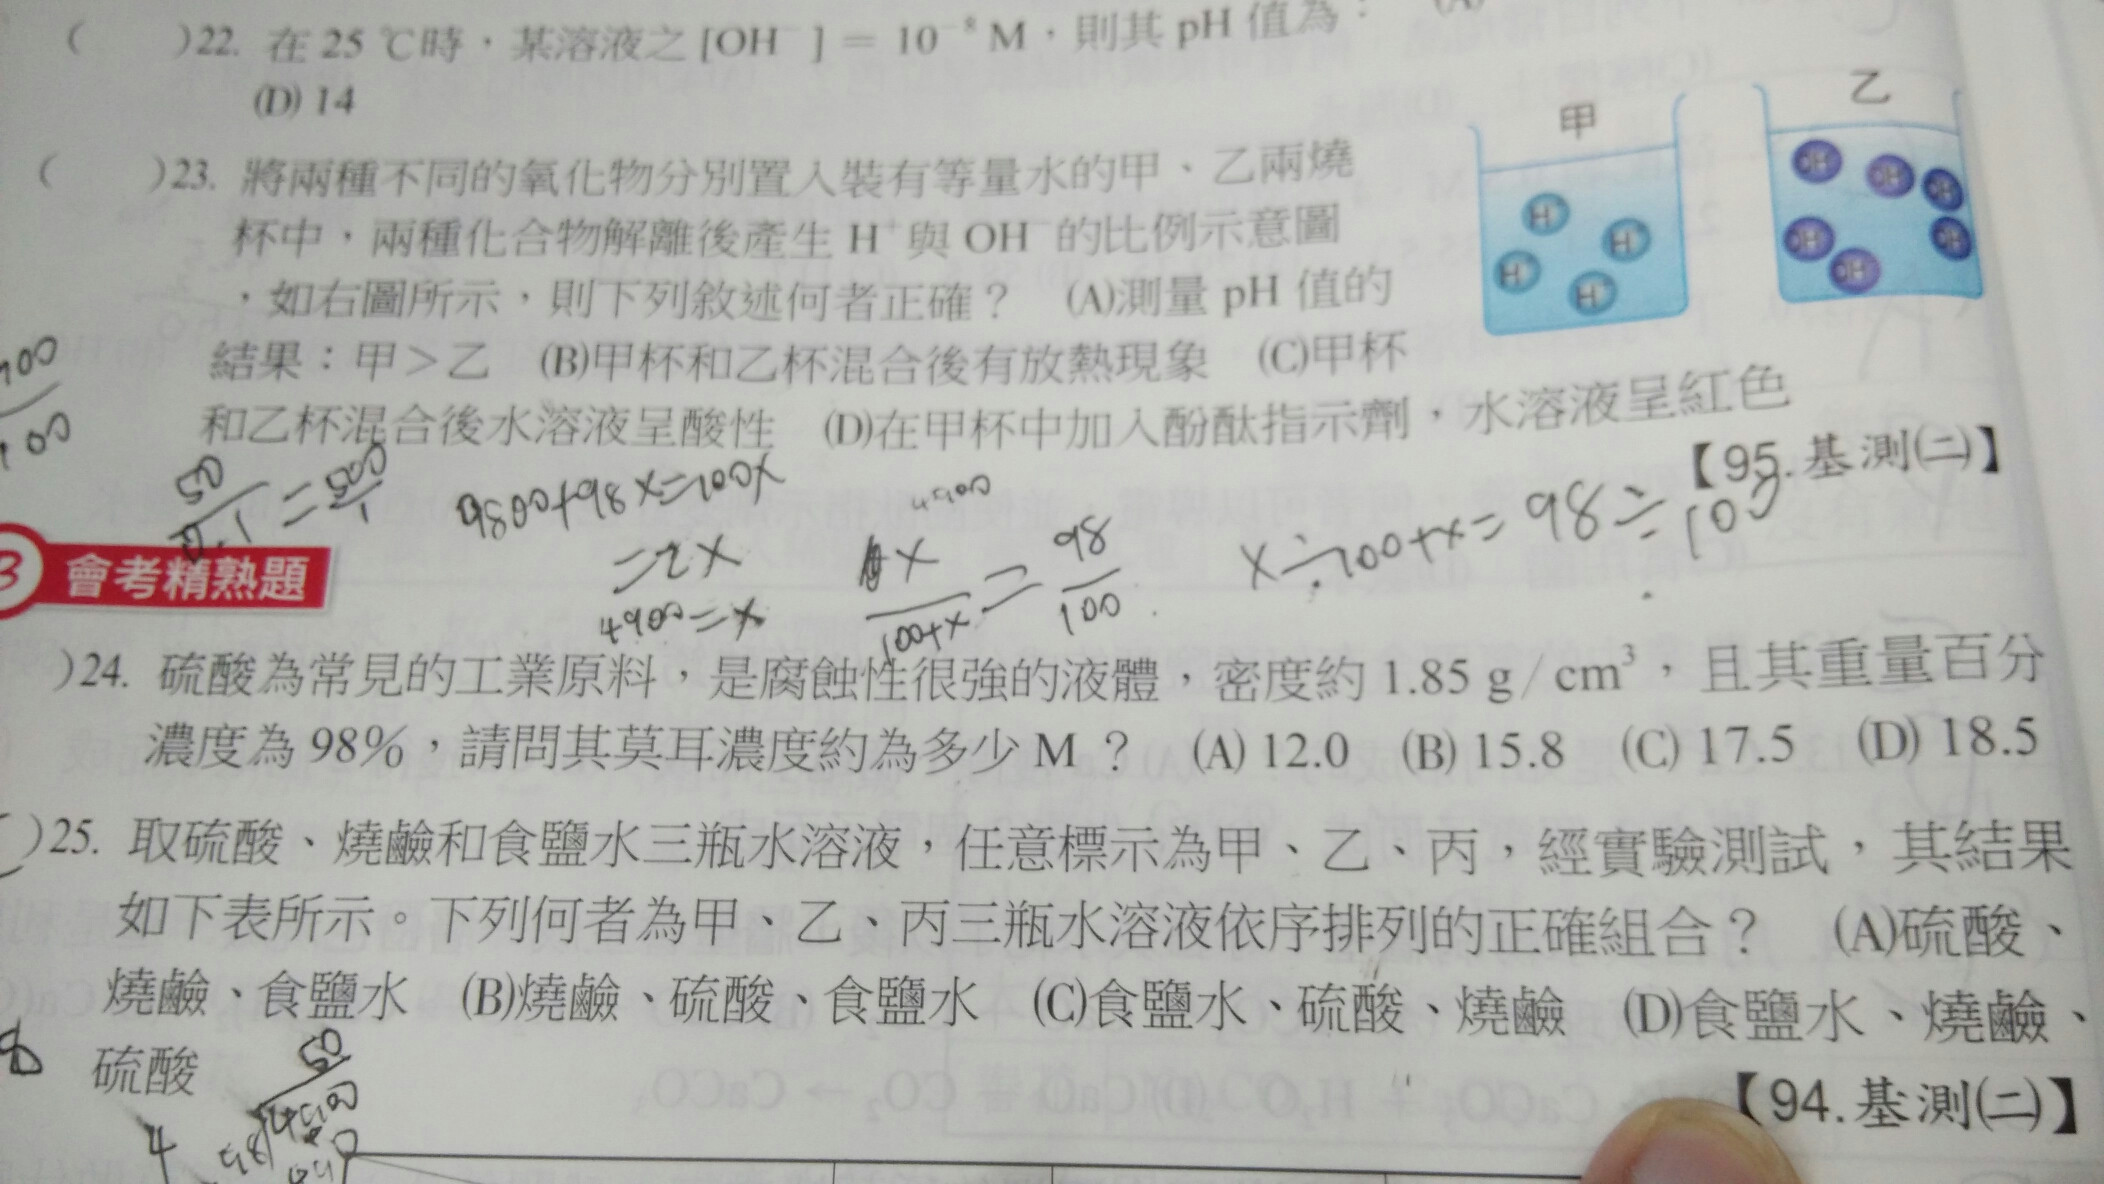 ( )22. 在 25 ℃時，某溶液之 [OH⁻] = 10⁻⁸ M，則其 pH 值為： (A)
(D) 14
( )23. 將兩種不同的氧化物分別置入裝有等量水的甲、乙兩燒
杯中，兩種化合物解離後產生 H⁺ 與 OH⁻ 的比例示意圖
，如右圖所示，則下列敘述何者正確？ (A)測量 pH 值的
結果：甲＞乙 (B)甲杯和乙杯混合後有放熱現象 (C)甲杯
和乙杯混合後水溶液呈酸性 (D)在甲杯中加入酚酞指示劑，水溶液呈紅色
【95.基測㈡】
甲
乙
H⁺
H⁺
H⁺
H⁺
OH⁻
OH⁻
OH⁻
OH⁻
OH⁻
OH⁻
OH⁻
100
50/0.1 = 500/1
9800+98x=100x
=2x
4900=x
4900
x/100+x = 98/100
x÷100+x=98÷100
會考精熟題
)24. 硫酸為常見的工業原料，是腐蝕性很強的液體，密度約 1.85 g/cm³，且其重量百分
濃度為 98%，請問其莫耳濃度約為多少 M？ (A) 12.0 (B) 15.8 (C) 17.5 (D) 18.5
)25. 取硫酸、燒鹼和食鹽水三瓶水溶液，任意標示為甲、乙、丙，經實驗測試，其結果
如下表所示。下列何者為甲、乙、丙三瓶水溶液依序排列的正確組合？ (A)硫酸、
燒鹼、食鹽水 (B)燒鹼、硫酸、食鹽水 (C)食鹽水、硫酸、燒鹼 (D)食鹽水、燒鹼、
硫酸
【94.基測㈡】
8
4
50
98
4900